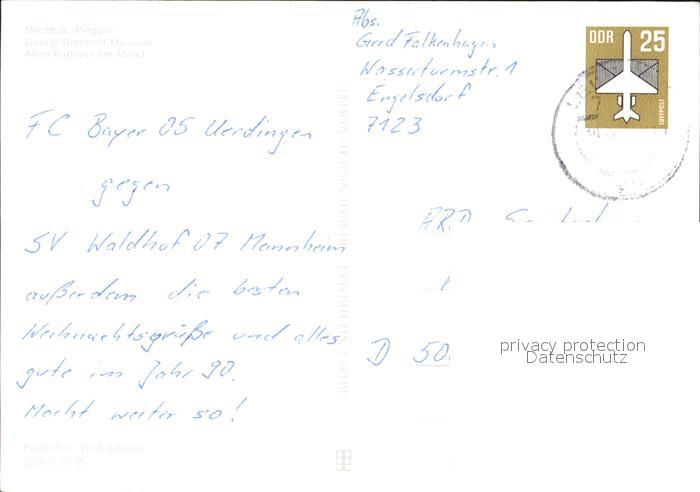 Milchbar „Pinguin“
Georgi-Dimitroff-Museum
Altes Rathaus am Markt
Abs.
Gerd Falkenhagen
Wasserturmstr. 1
Engelsdorf
7123
DDR 25
LUFTPOST
FC Bayer 05 Uerdingen
gegen
SV Waldhof 07 Mannheim
außerdem die besten
Weihnachtsgrüße und alles
gute im Jahr 90.
Macht weiter so!
BILD UND HEIMAT REICHENBACH
ARD
D 50
privacy protection
Datenschutz
Farbfotos: Wolf, Leipzig
DDR 0,70 M